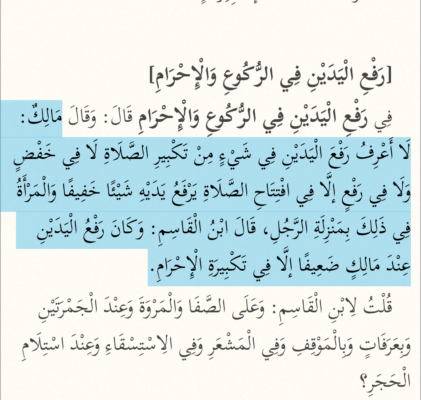 [رَفْعِ الْيَدَيْنِ فِي الرُّكُوعِ وَالْإِحْرَامِ]
فِي رَفْعِ الْيَدَيْنِ فِي الرُّكُوعِ وَالْإِحْرَامِ قَالَ: وَقَالَ مَالِكٌ:
لَا أَعْرِفُ رَفْعَ الْيَدَيْنِ فِي شَيْءٍ مِنْ تَكْبِيرِ الصَّلَاةِ لَا فِي خَفْضٍ
وَلَا فِي رَفْعٍ إلَّا فِي افْتِتَاحِ الصَّلَاةِ يَرْفَعُ يَدَيْهِ شَيْئًا خَفِيفًا وَالْمَرْأَةُ
فِي ذَلِكَ بِمَنْزِلَةِ الرَّجُلِ، قَالَ ابْنُ الْقَاسِمِ: وَكَانَ رَفْعُ الْيَدَيْنِ
عِنْدَ مَالِكٍ ضَعِيفًا إلَّا فِي تَكْبِيرَةِ الْإِحْرَامِ.
قُلْتُ لِابْنِ الْقَاسِمِ: وَعَلَى الصَّفَا وَالْمَرْوَةِ وَعِنْدَ الْجَمْرَتَيْنِ
وَبِعَرَفَاتٍ وَبِالْمَوْقِفِ وَفِي الْمَشْعَرِ وَفِي الِاسْتِسْقَاءِ وَعِنْدَ اسْتِلَامِ
الْحَجَرِ؟